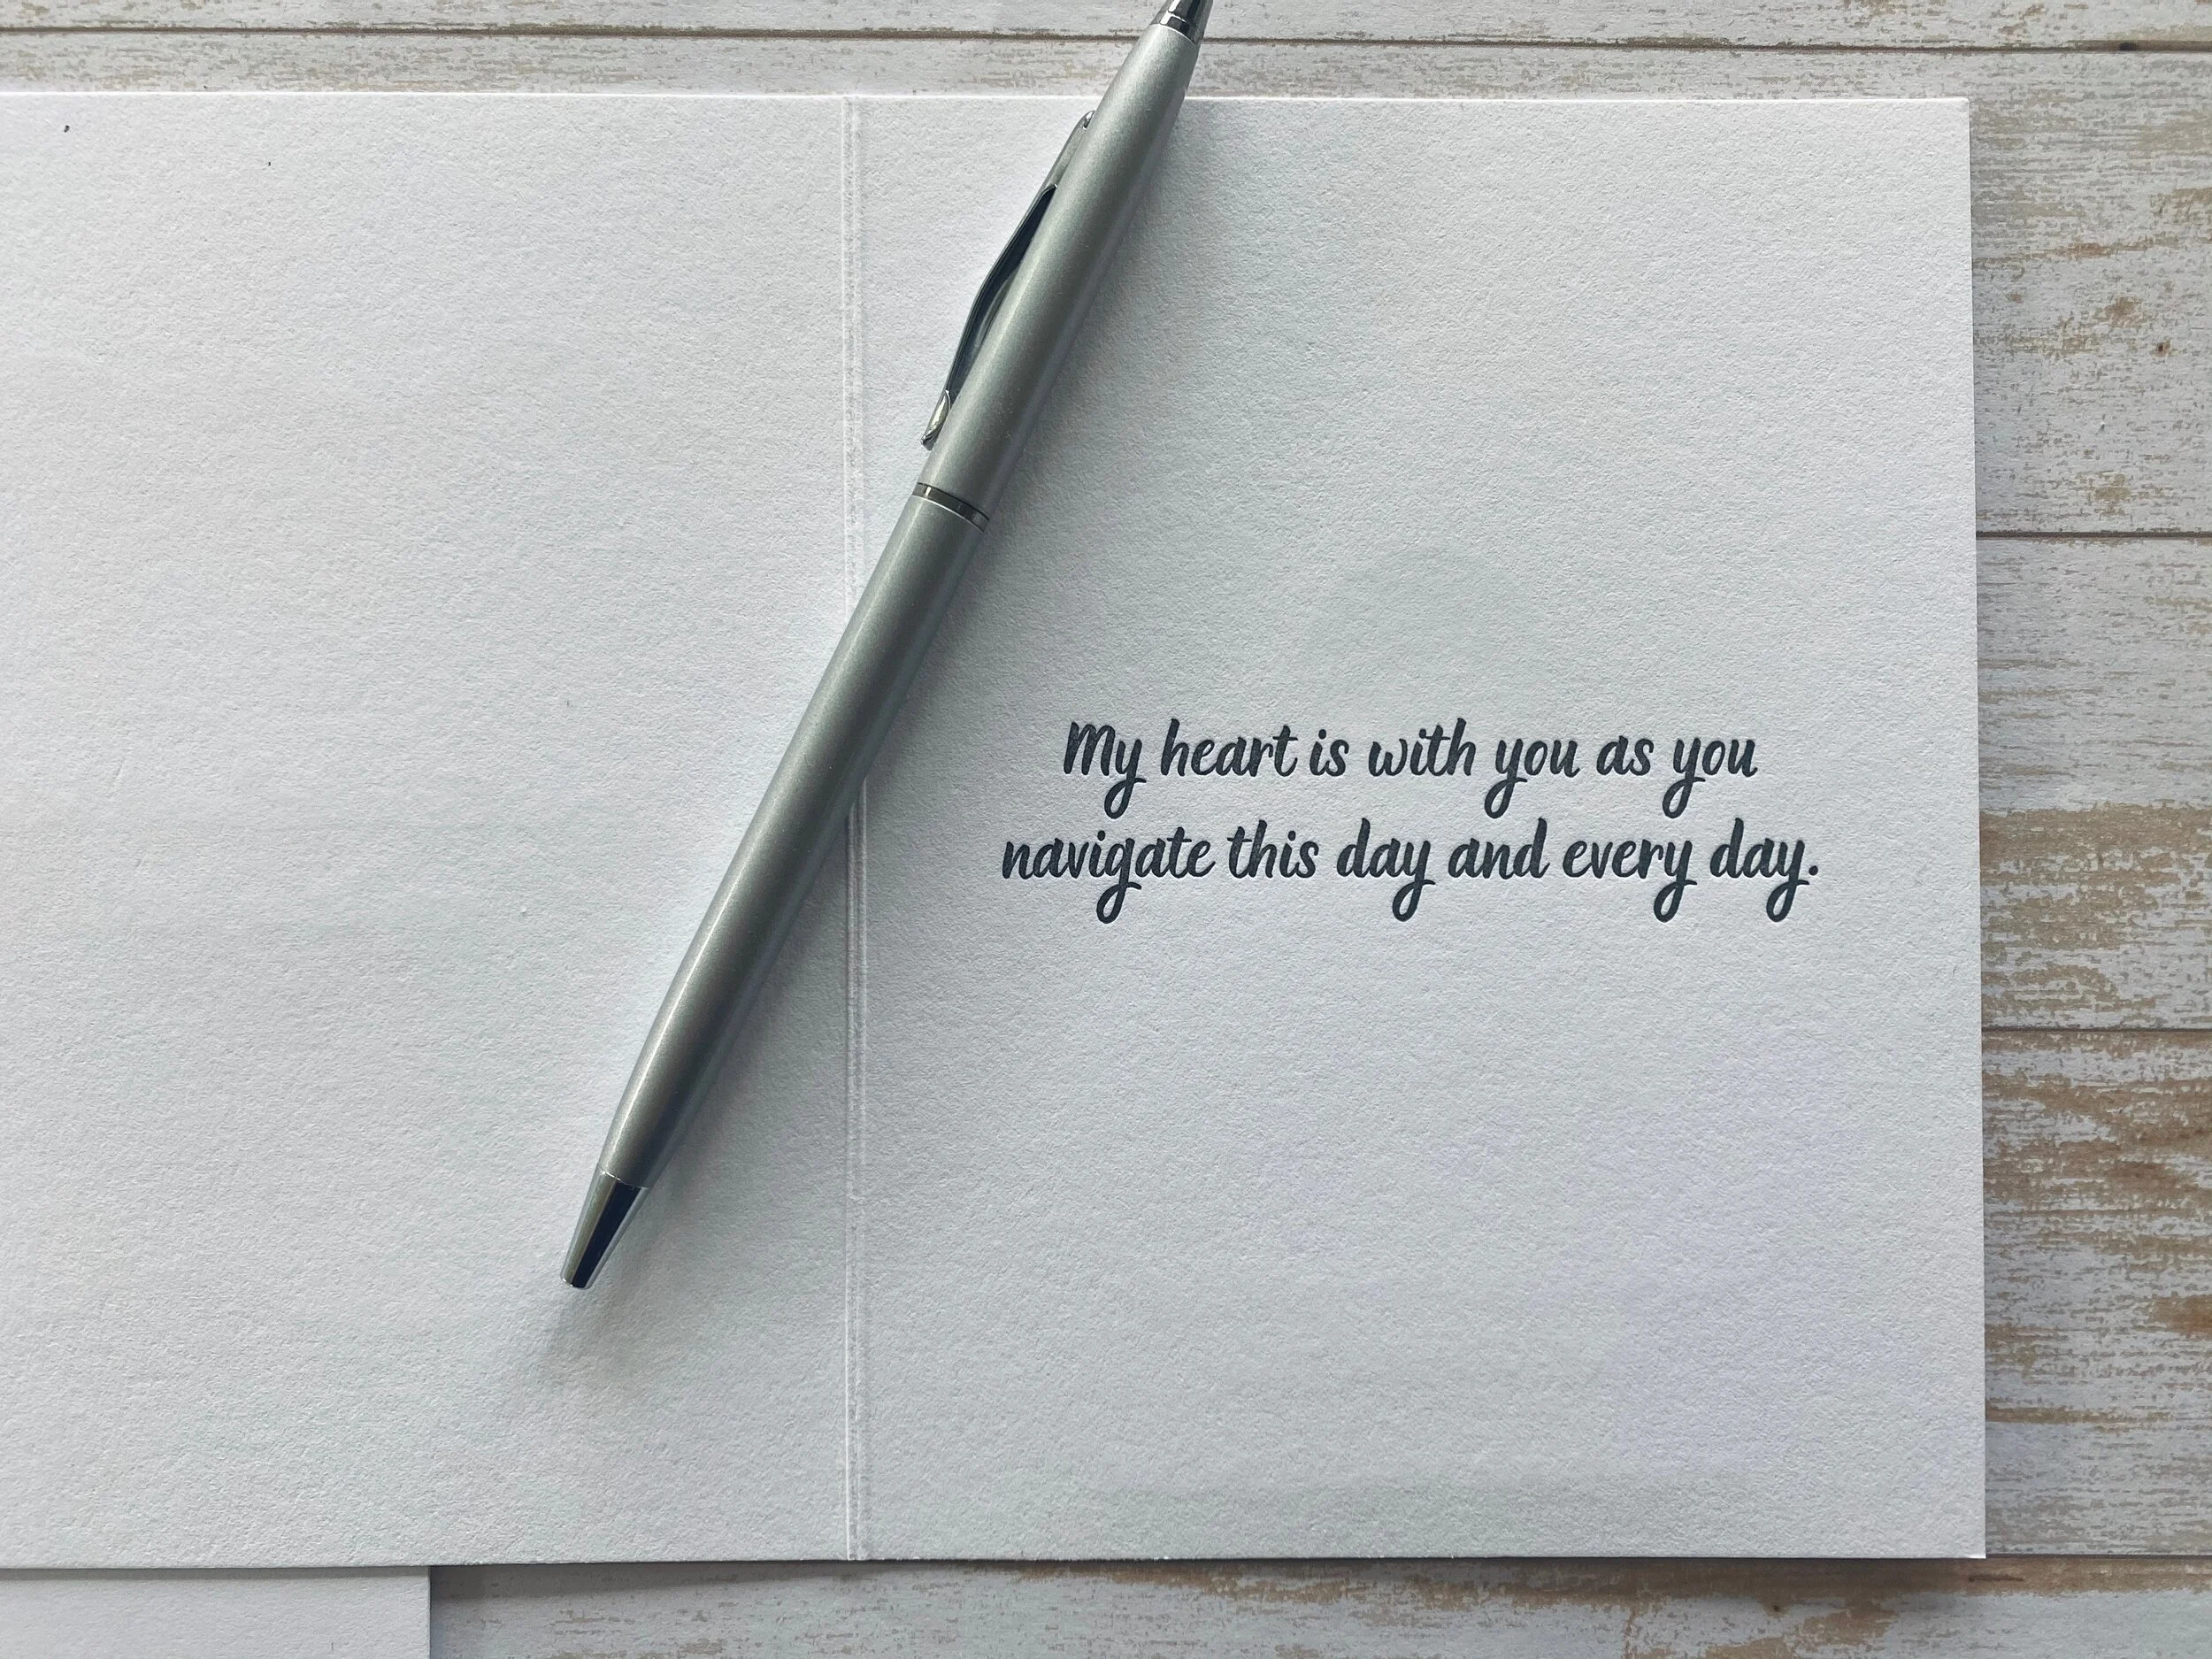 My heart is with you as you
navigate this day and every day.